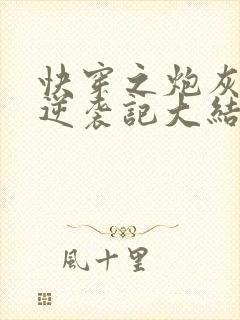 快穿之炮灰
逆袭記大結
風十里